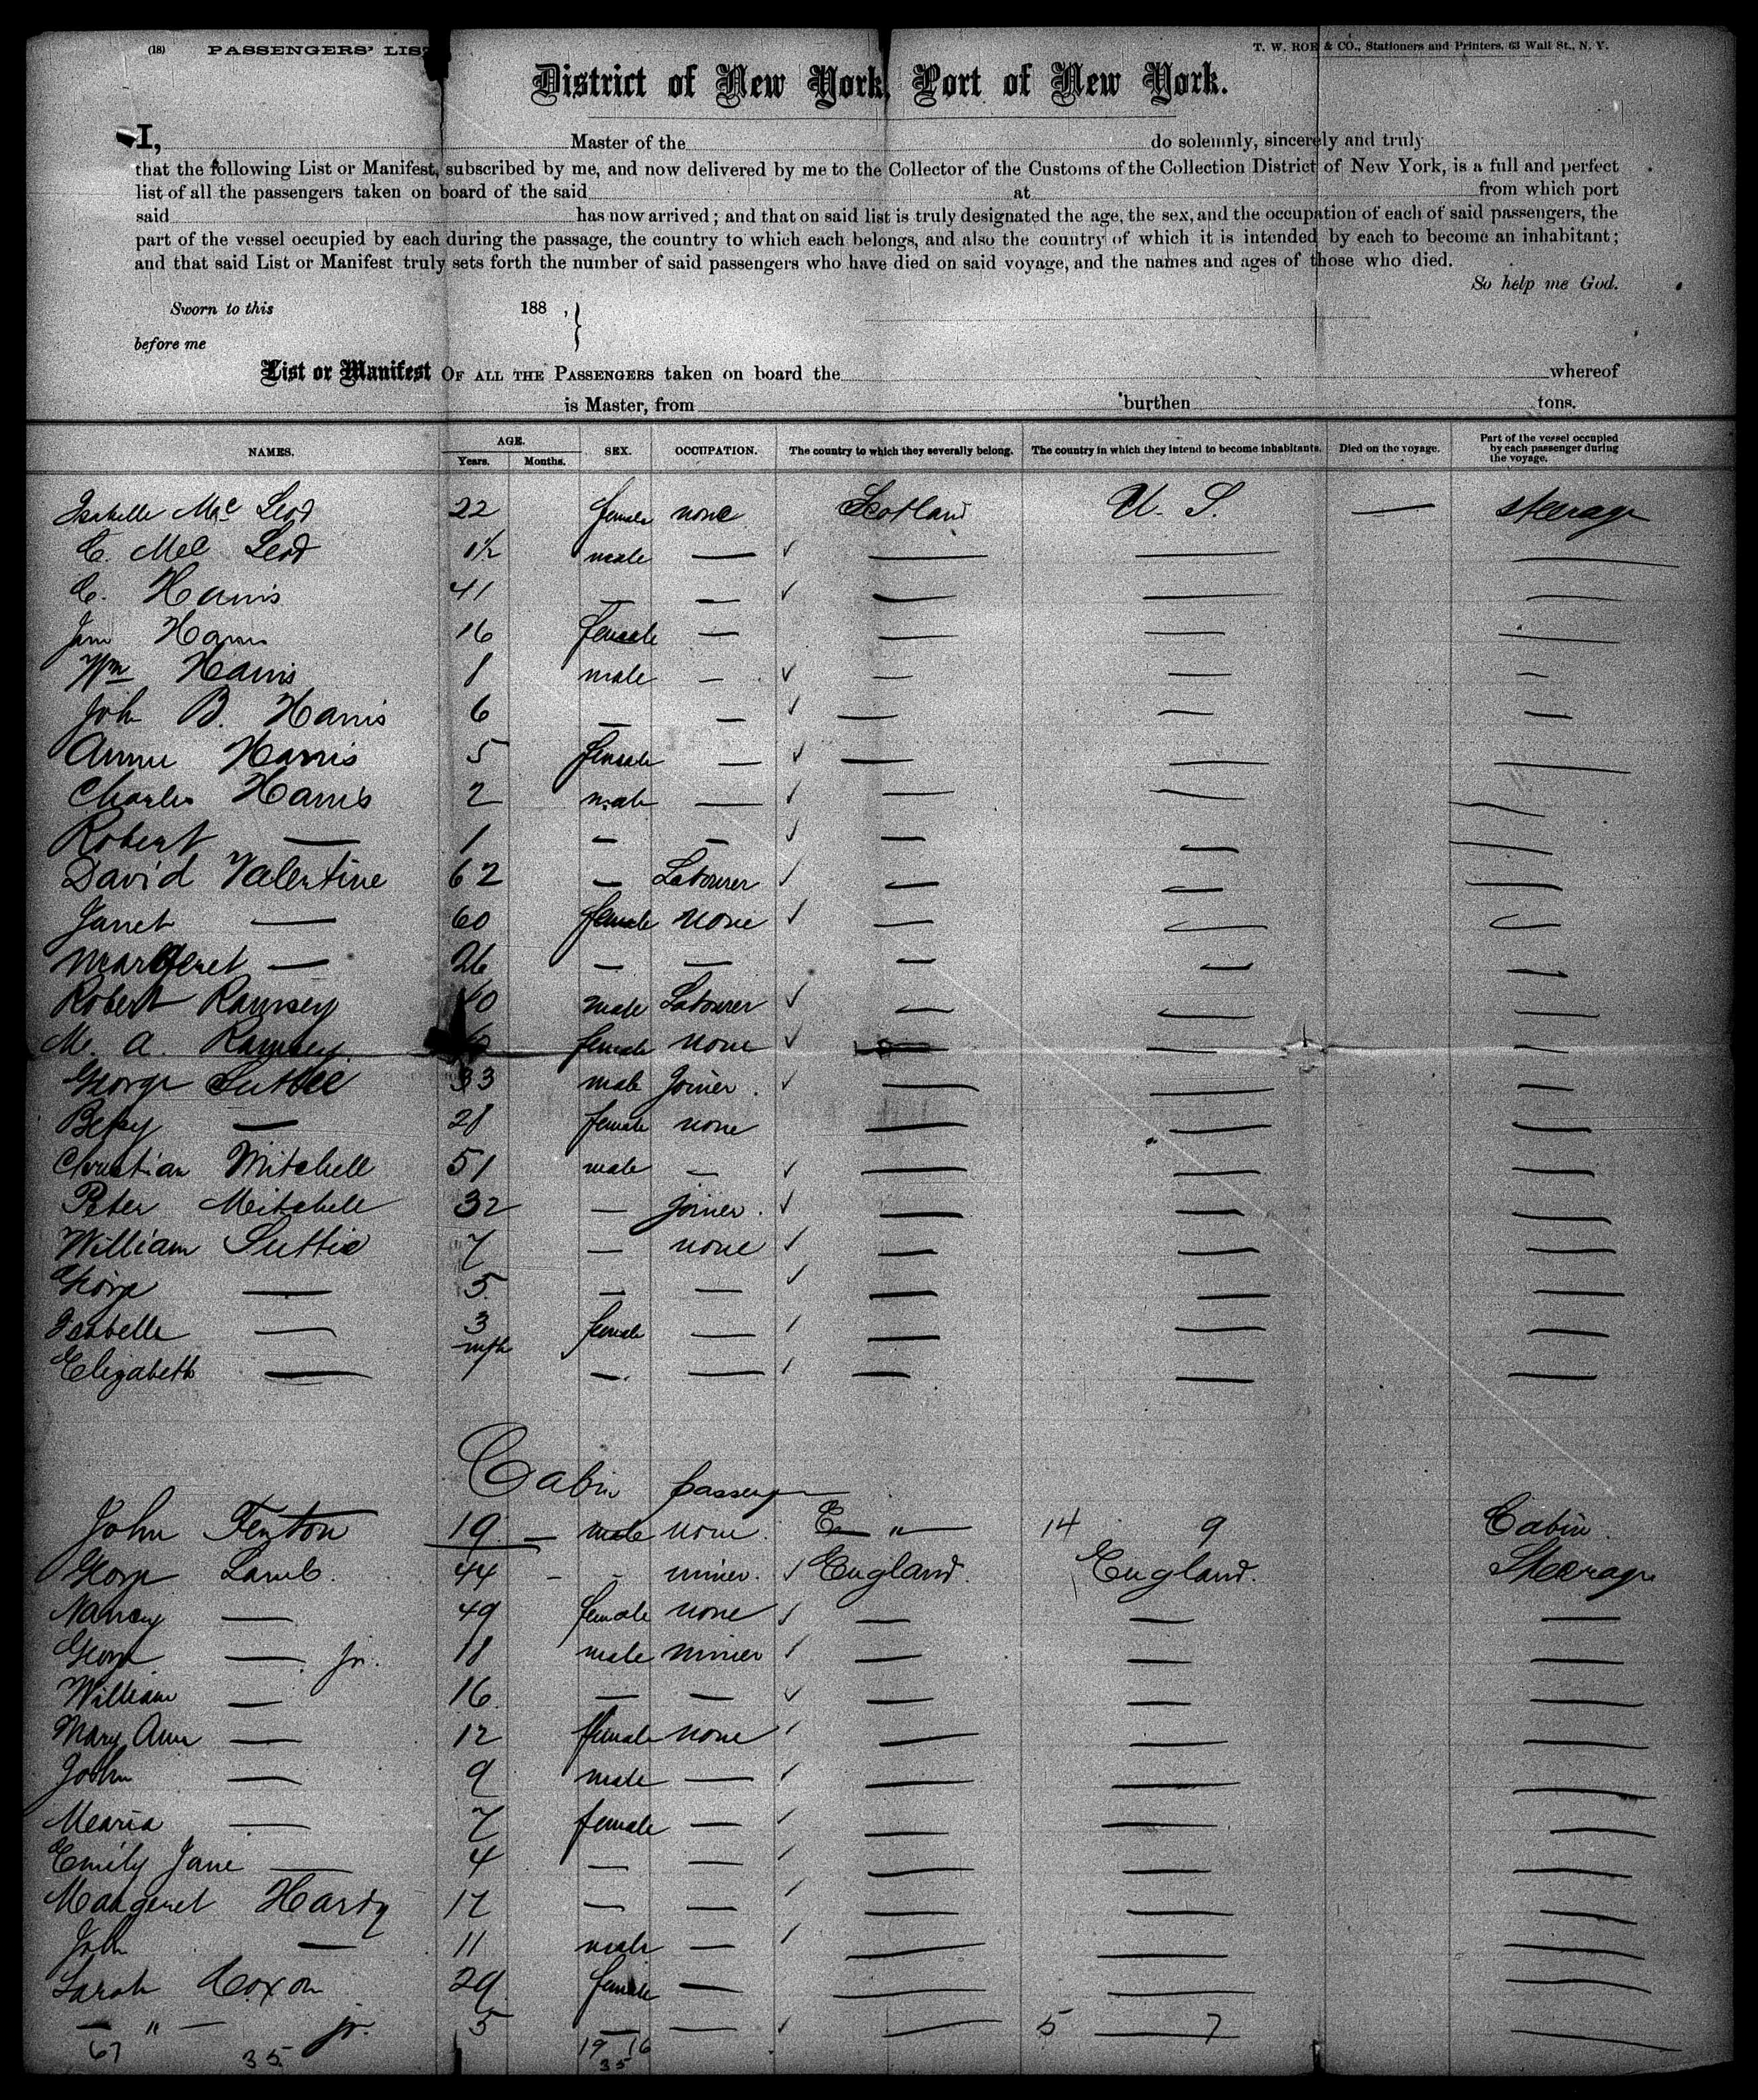 (18) PASSENGERS' LIS
T. W. ROE & CO., Stationers and Printers, 63 Wall St., N. Y.
District of New York, Port of New York.
I, Master of the do solemnly, sincerely and truly
that the following List or Manifest, subscribed by me, and now delivered by me to the Collector of the Customs of the Collection District of New York, is a full and perfect
list of all the passengers taken on board of the said at from which port
said has now arrived; and that on said list is truly designated the age, the sex, and the occupation of each of said passengers, the
part of the vessel occupied by each during the passage, the country to which each belongs, and also the country of which it is intended by each to become an inhabitant;
and that said List or Manifest truly sets forth the number of said passengers who have died on said voyage, and the names and ages of those who died.
So help me God.
Sworn to this 188 , }
before me
List or Manifest OF ALL THE PASSENGERS taken on board the whereof
is Master, from burthen tons.
NAMES. AGE. Years. Months. SEX. OCCUPATION. The country to which they severally belong. The country in which they intend to become inhabitants. Died on the voyage. Part of the vessel occupied by each passenger during the voyage.
Isabelle Mc Leod 22 female none Scotland U. S. — steerage
C. Mcc Leod 1½ male — ✓ — — —
C. Harris 41 — — ✓ — — —
Jane Harris 16 female — — — —
Wm Harris 8 male — ✓ — — —
John B. Harris 6 — — ✓ — — —
Annie Harris 5 female — ✓ — — —
Charles Harris 2 male — ✓ — — —
Robert — 1 — — ✓ — — —
David Valentine 62 — Labourer ✓ — — —
Janet — 60 female none ✓ — — —
Margeret — 26 — — — — —
Robert Ramsey male Labourer ✓ — — —
M. A. Ramsey female none ✓ — — —
George Suttie 33 male Joiner ✓ — — —
Betsy — 28 female none — — —
Christian Mitchell 51 male — ✓ — — —
Peter Mitchell 32 — joiner. ✓ — — —
William Suttie 7 — none ✓ — — —
George — 5 — — ✓ — — —
Isabelle — 3 female — ✓ — — —
Elizabeth — mth 1 — — ✓ — — —
Cabin passenger
John Fenton 19 — male none E — " — 14 9 Cabin
George Lamb. 44 - - miner. ✓ England. England. Steerage
Nancy — 49 female none ✓ — — —
George — jr. 18 male miner ✓ — — —
William — 16 — — ✓ — — —
Mary Ann — 12 female none ✓ — — —
John — 9 male — ✓ — — —
Maria — 7 female — ✓ — — —
Emily Jane — 4 — — ✓ — — —
Margeret Hardy 17 — — ✓ — — —
John — 11 male — ✓ — — —
Sarah Coxon 29 female — — — —
— " — jr. 5 — — ✓ — 5 — 7 —
67 35 19 16
35